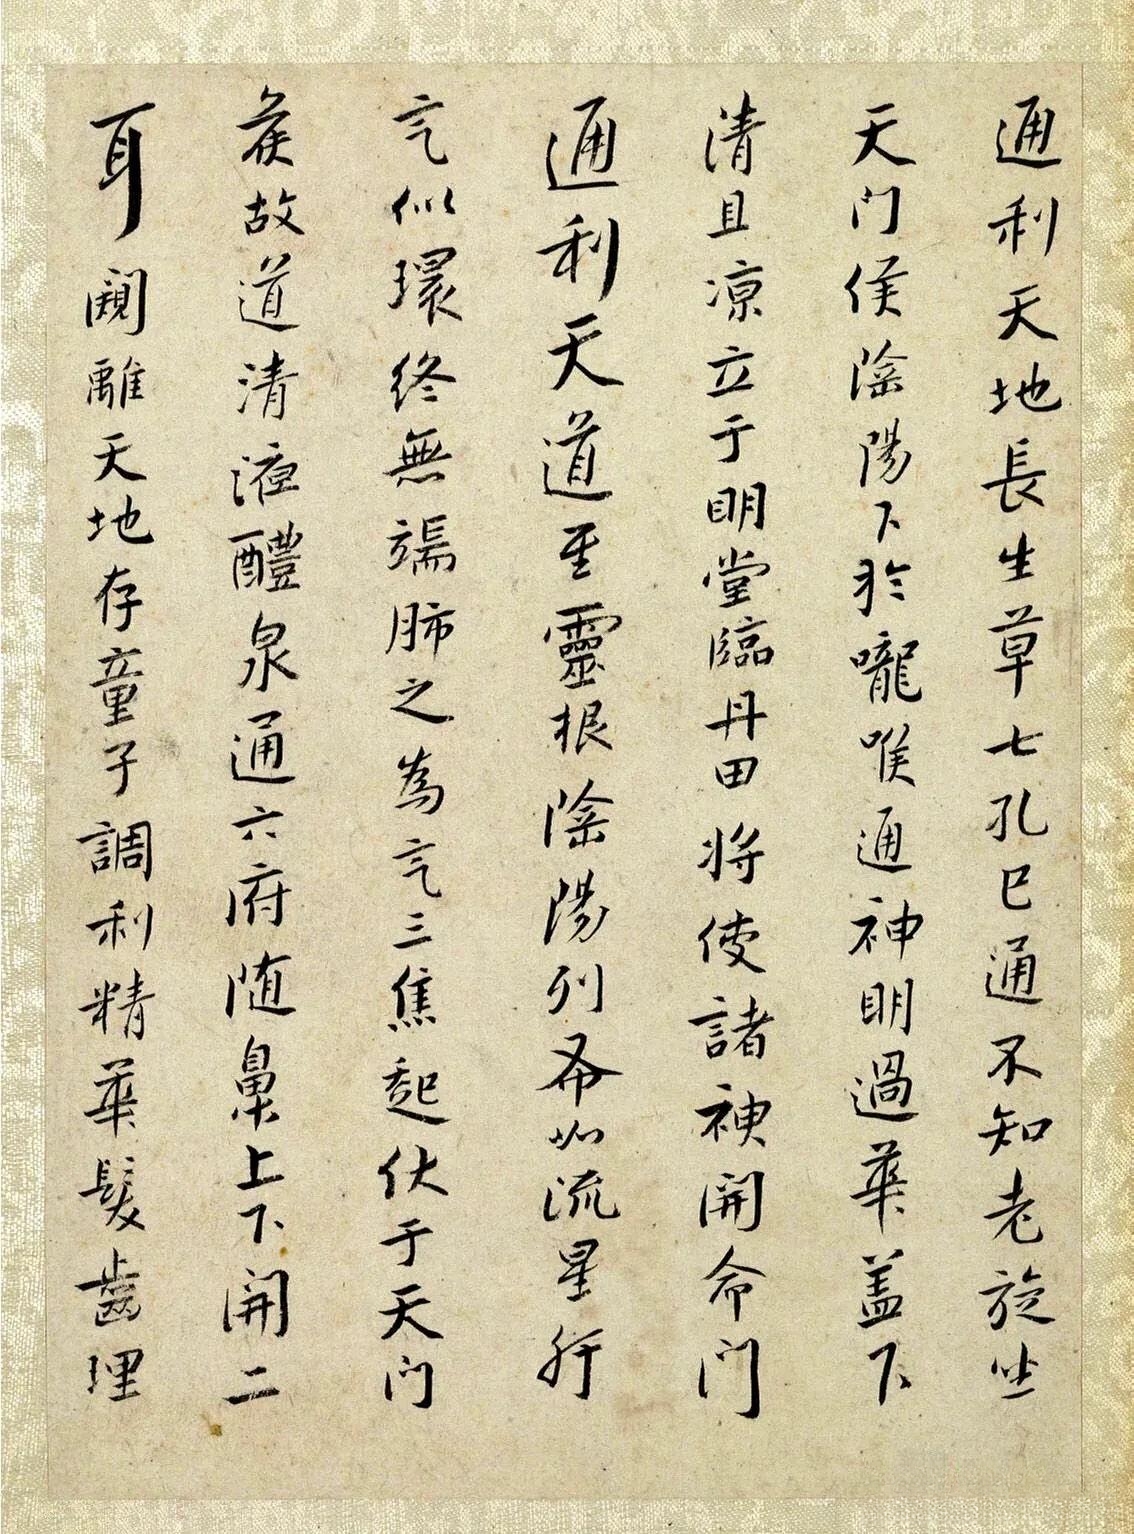 通利天地長生草七孔已通不知老旋坐
天門候陰陽下於嚨喉通神明過華盖下
清且凉立于明堂臨丹田將使諸神開命門
通利天道至靈根陰陽列布如流星肝
氣似環終無端肺之為氣三焦起伏于天門
候故道清液醴泉通六府随鼻上下開二
耳闚離天地存童子調利精華髮齒理